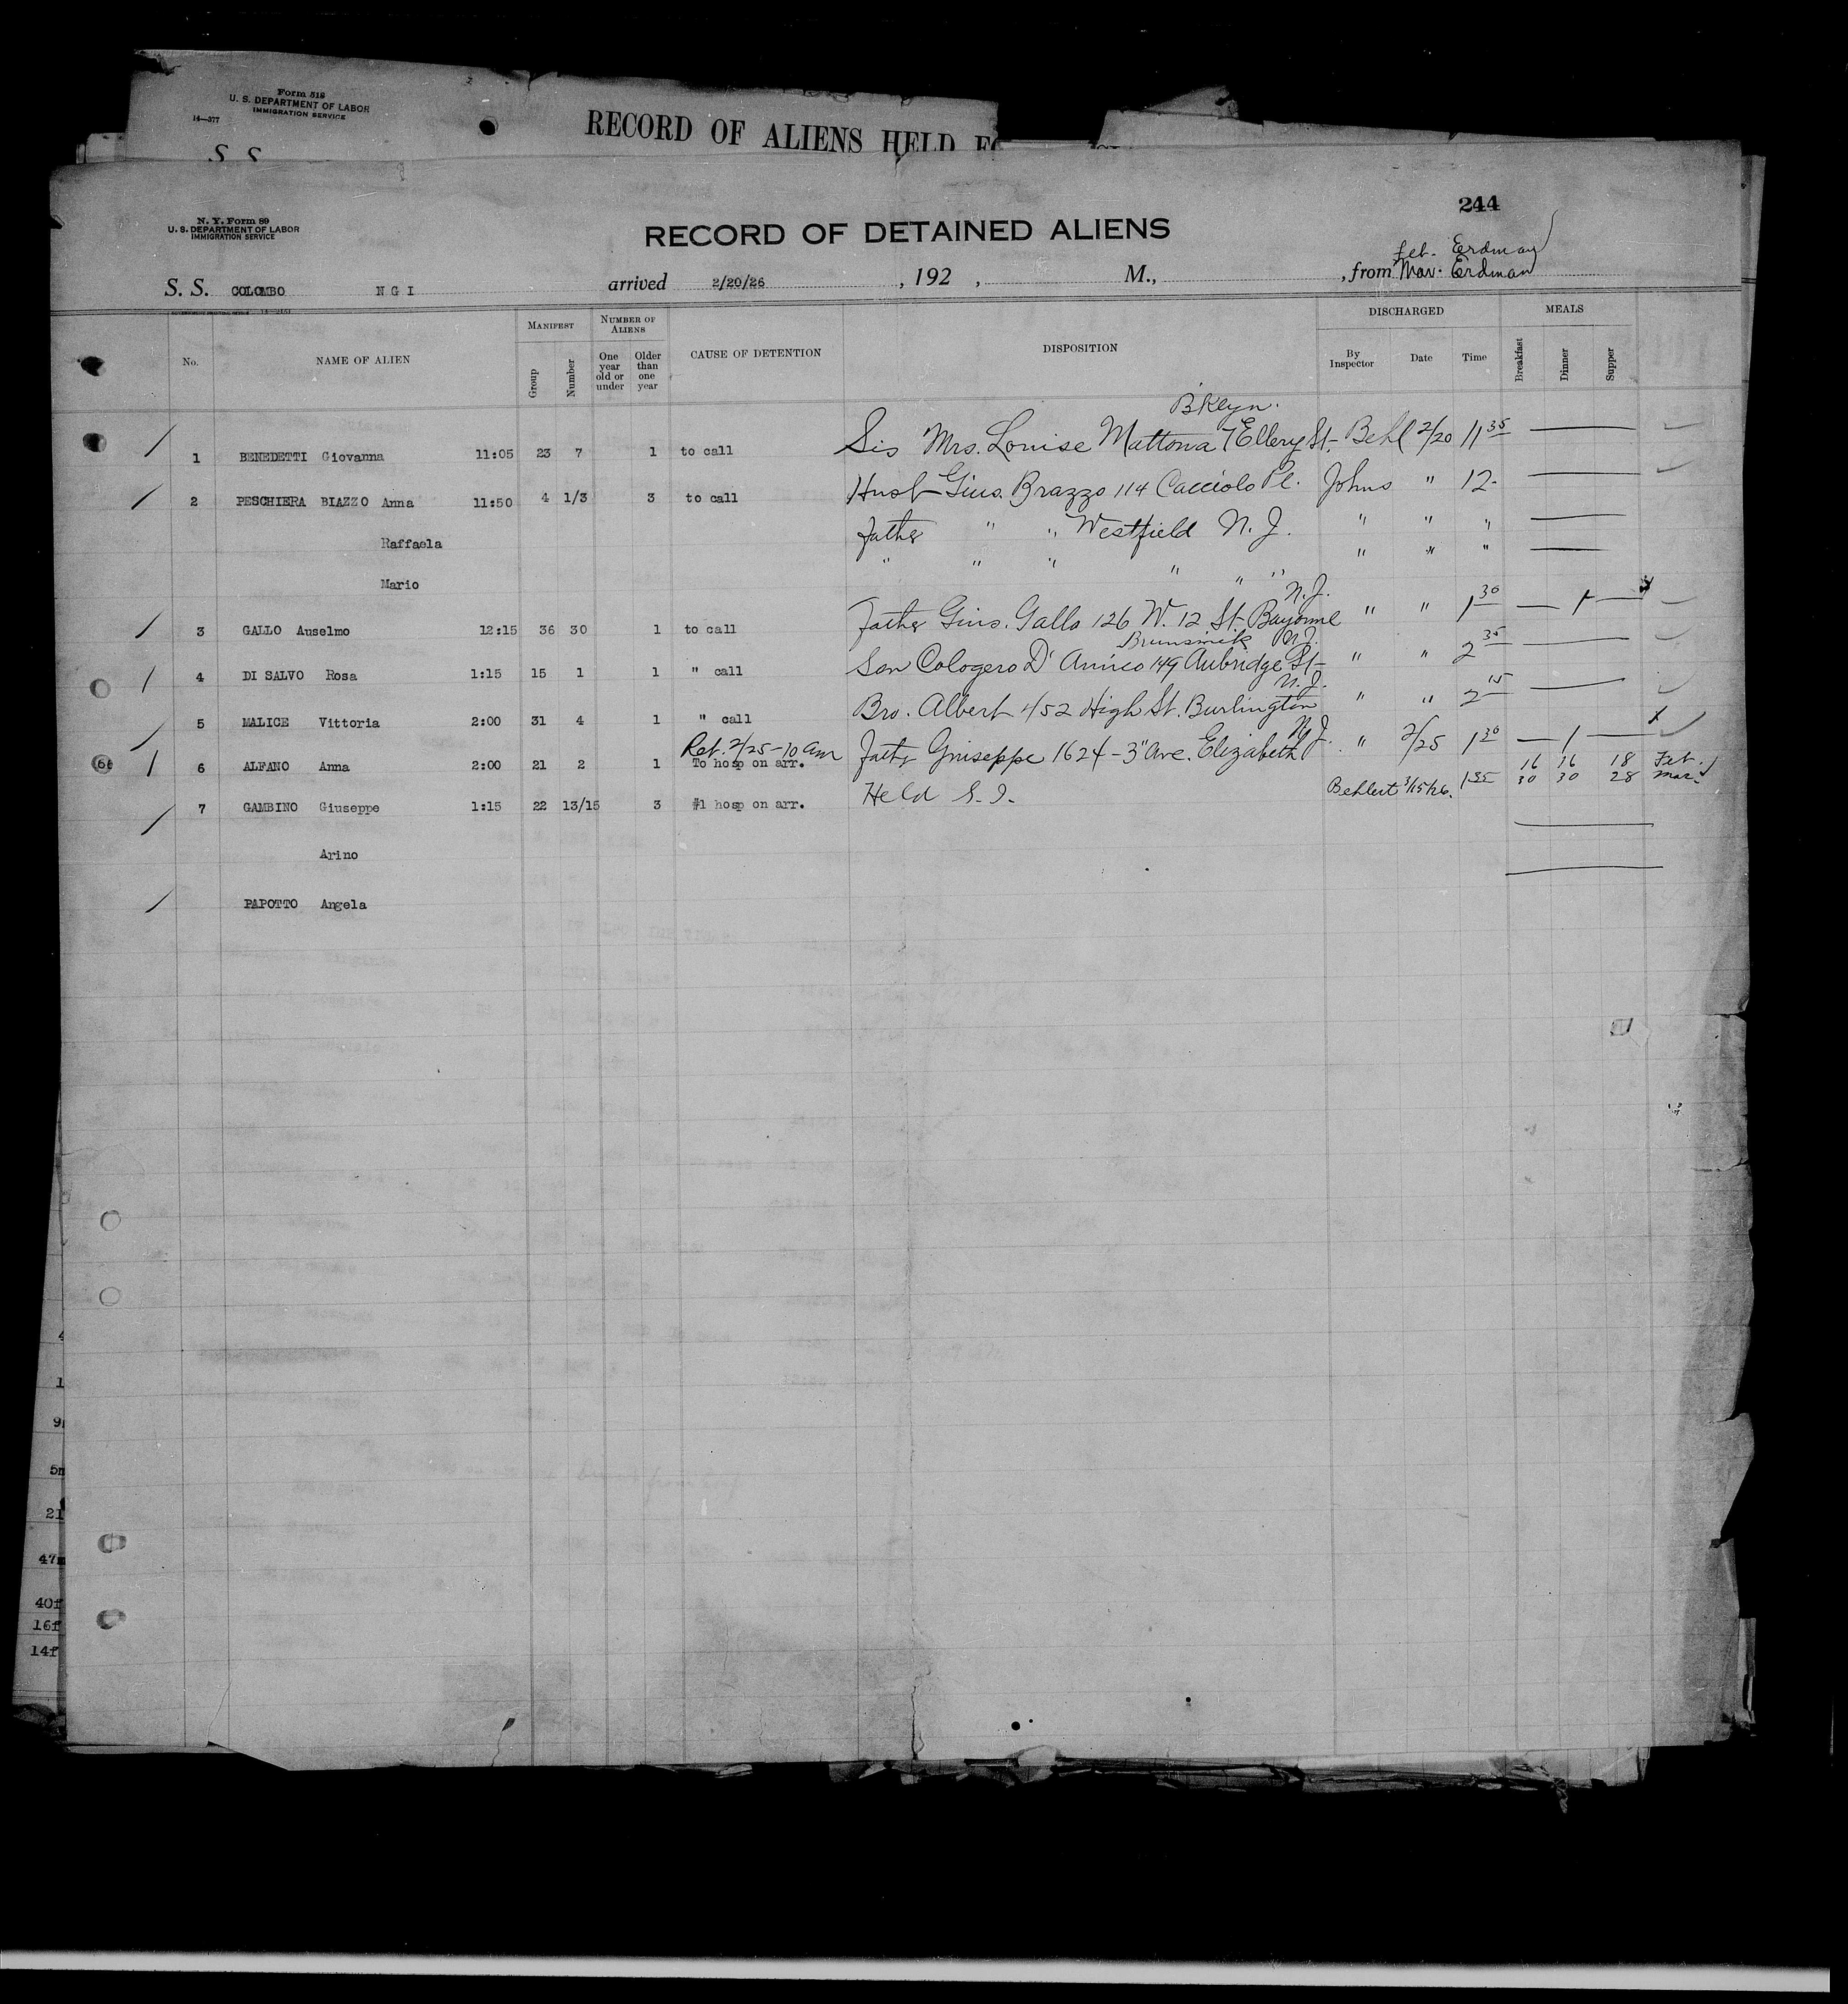 Form 518
U. S. DEPARTMENT OF LABOR
IMMIGRATION SERVICE
14—377
RECORD OF ALIENS HELD
S S
244
N. Y. Form 89
U. S. DEPARTMENT OF LABOR
IMMIGRATION SERVICE
RECORD OF DETAINED ALIENS
Feb. Erdman
S. S. COLOMBO N G I arrived 2/20/26, 192 , M., , from Mar. Erdman
No. NAME OF ALIEN MANIFEST Group Number NUMBER OF ALIENS One year old or under Older than one year CAUSE OF DETENTION DISPOSITION DISCHARGED By Inspector Date Time MEALS Breakfast Dinner Supper
B'klyn.
1 BENEDETTI Giovanna 11:05 23 7 1 to call Sis Mrs. Louise Mattona 7 Ellery St. Behl 2/20 11 35
2 PESCHIERA BIAZZO Anna 11:50 4 1/3 3 to call Husb Gius. Brazzo 114 Cacciolo Pl. Johns " 12-
Raffaela Father " " Westfield N. J. " " "
Mario " " " " " " " " "
N.J.
3 GALLO Auselmo 12:15 36 30 1 to call Father Gius. Gallo 126 W. 12 St Bayonne " " 1 30 — 1 —
Brunswick N.J.
4 DI SALVO Rosa 1:15 15 1 1 " call Son Cologero D'Amico 149 St- " " 2 35
N.J.
5 MALICE Vittoria 2:00 31 4 1 " call Bro. Albert 452 High St. Burlington " " 2 15
Ret. 2/25-10 am N.J.
6 ALFANO Anna 2:00 21 2 1 To hosp on arr. Fath Giuseppe 1624-3" Ave. Elizabeth " 2/25 1 30 — 1 —
16 16 18 Feb.
7 GAMBINO Giuseppe 1:15 22 13/15 3 #1 hosp on arr. Held S.I. Behlert 3/15/26. 1 55 30 30 28 Mar
Arino
PAPOTTO Angela
1
5m
21
47m
40f
16f
14f